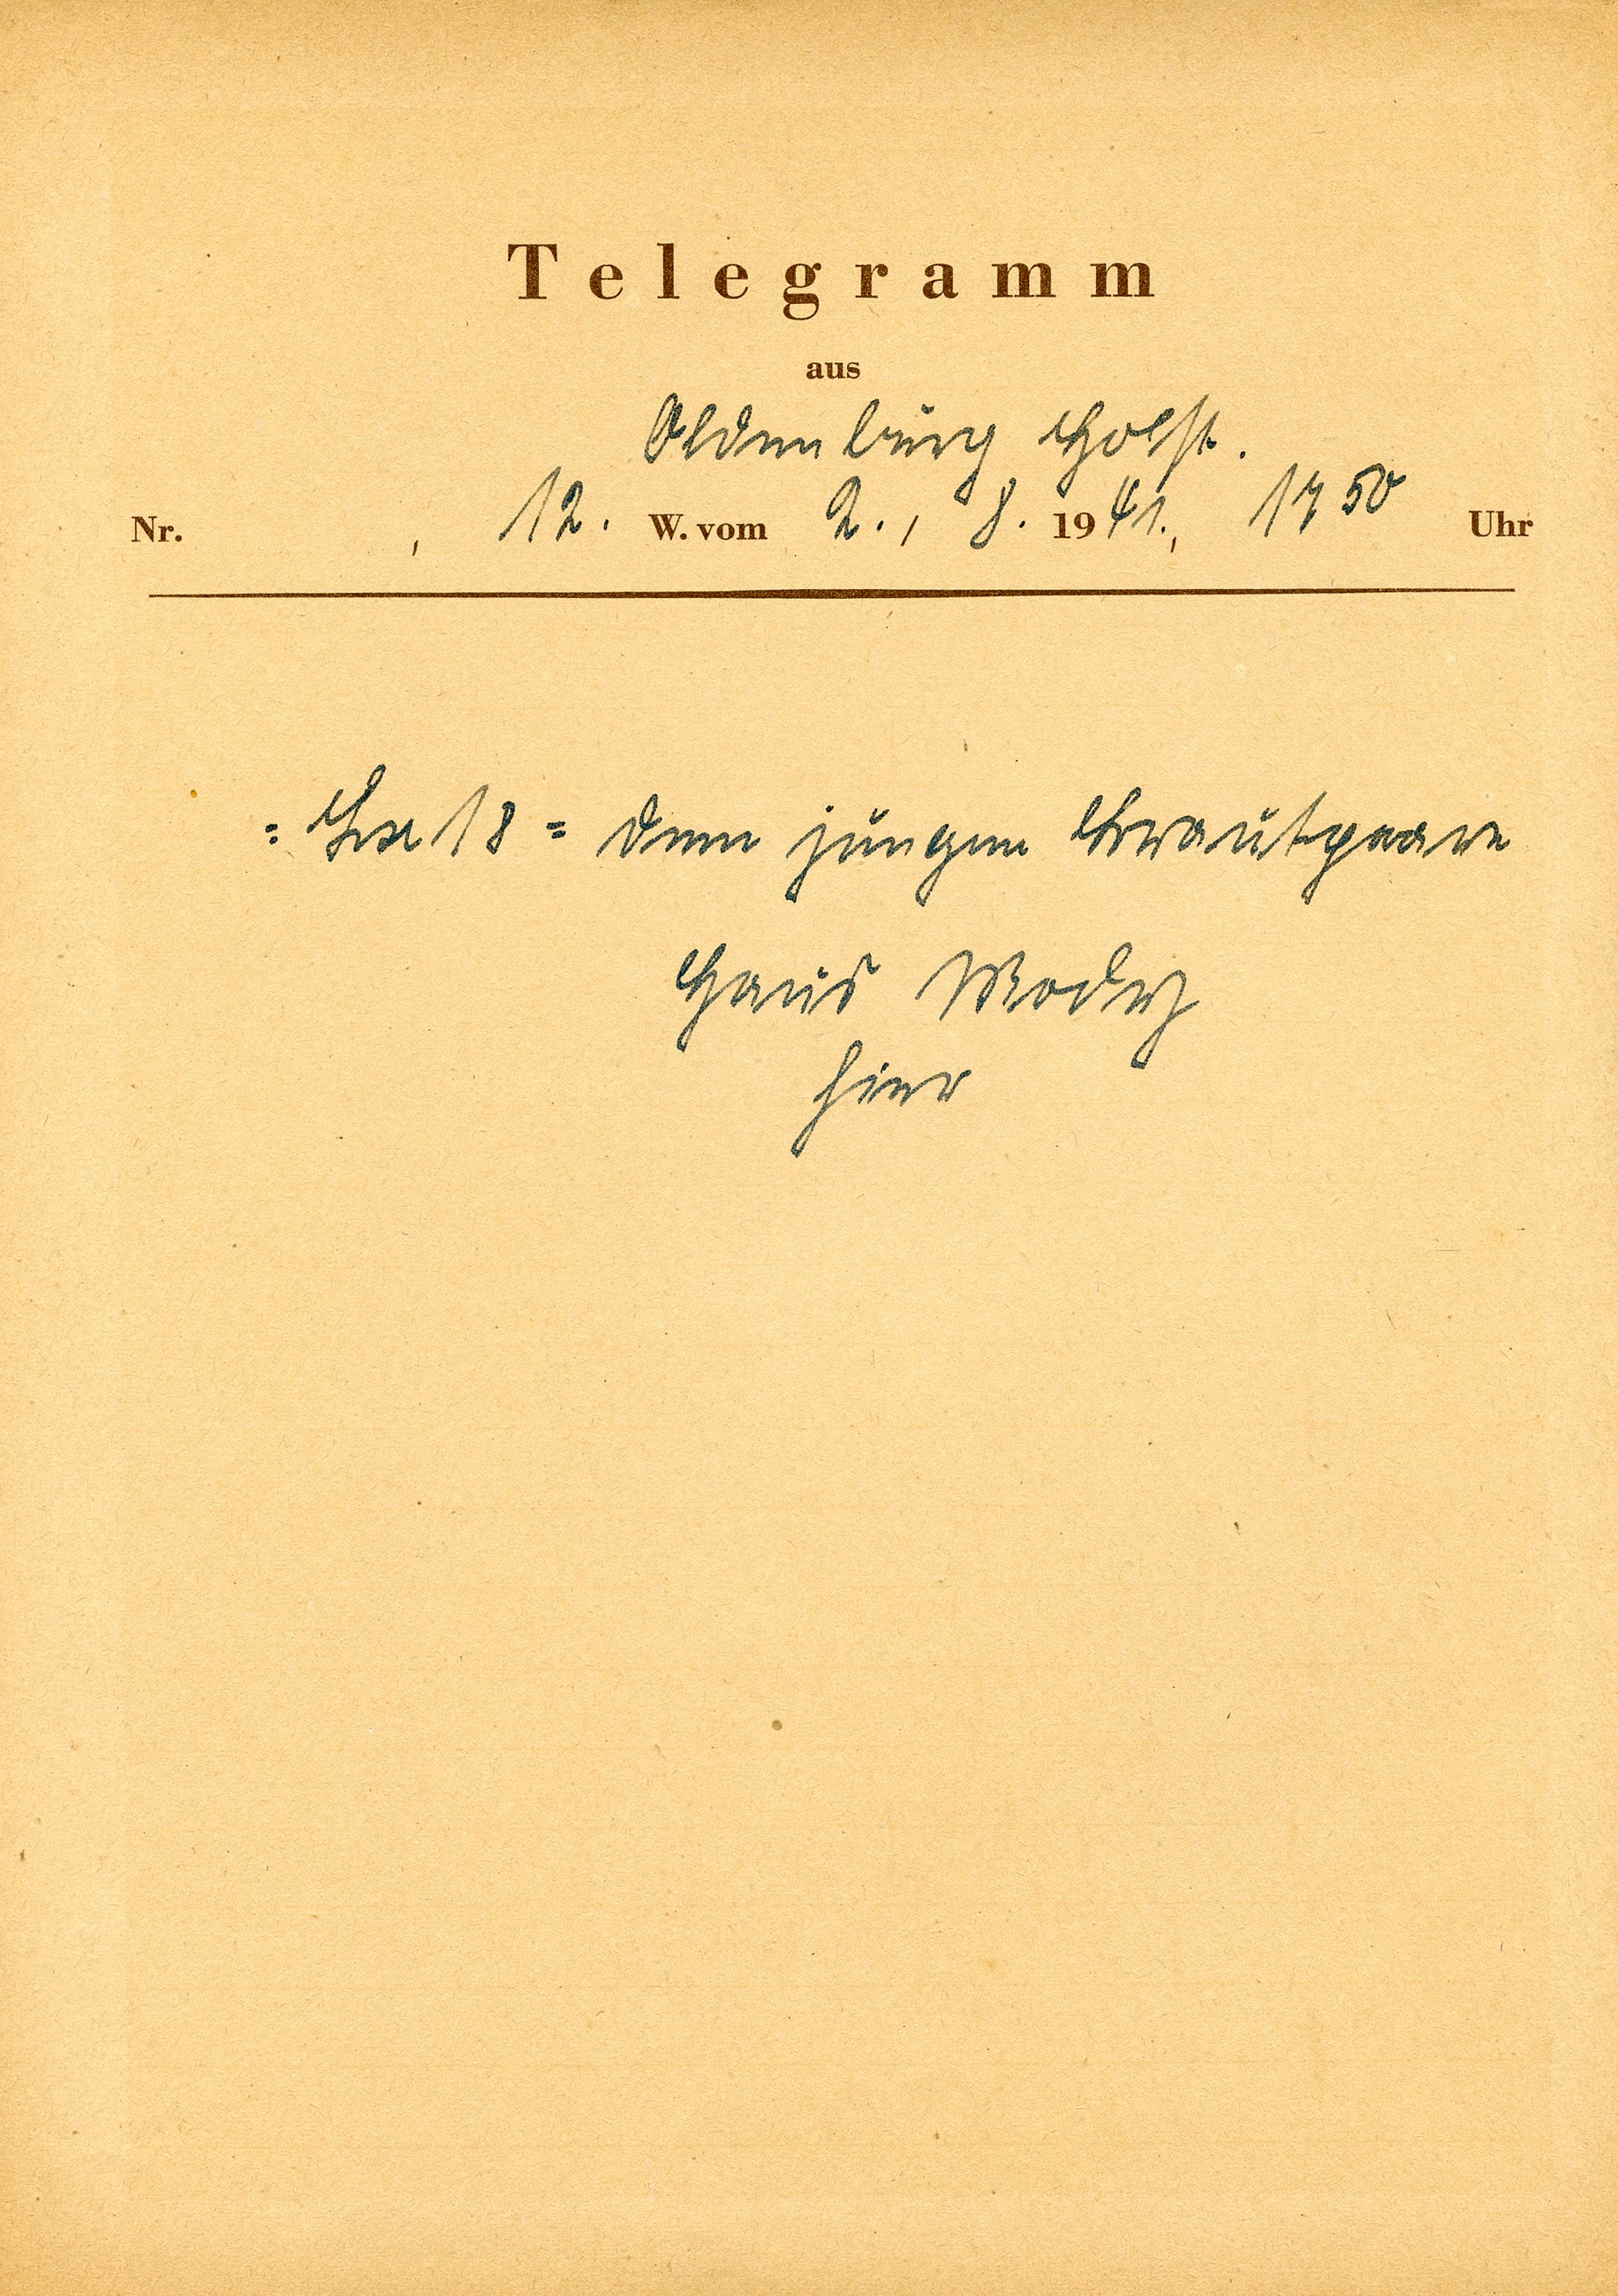 Telegramm
aus
Oldenburg Holst.
Nr. , 12. W. vom 2. / 8. 1941., 17 50 Uhr
= Lx 18 = dem jungen Brautpaare
Haus
hier